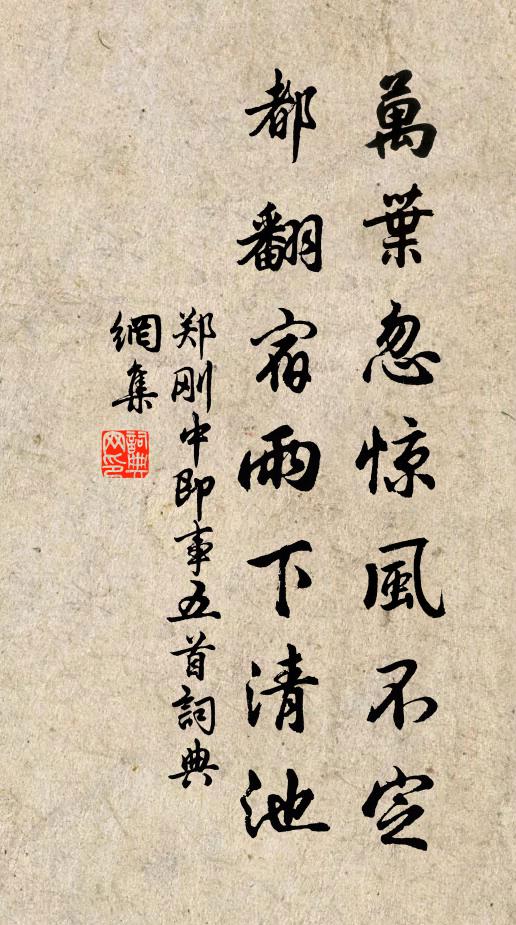 萬葉忽惊風不定
都翻宿雨下清池
郑刚中即事五首詞典
網集
詞典
网印